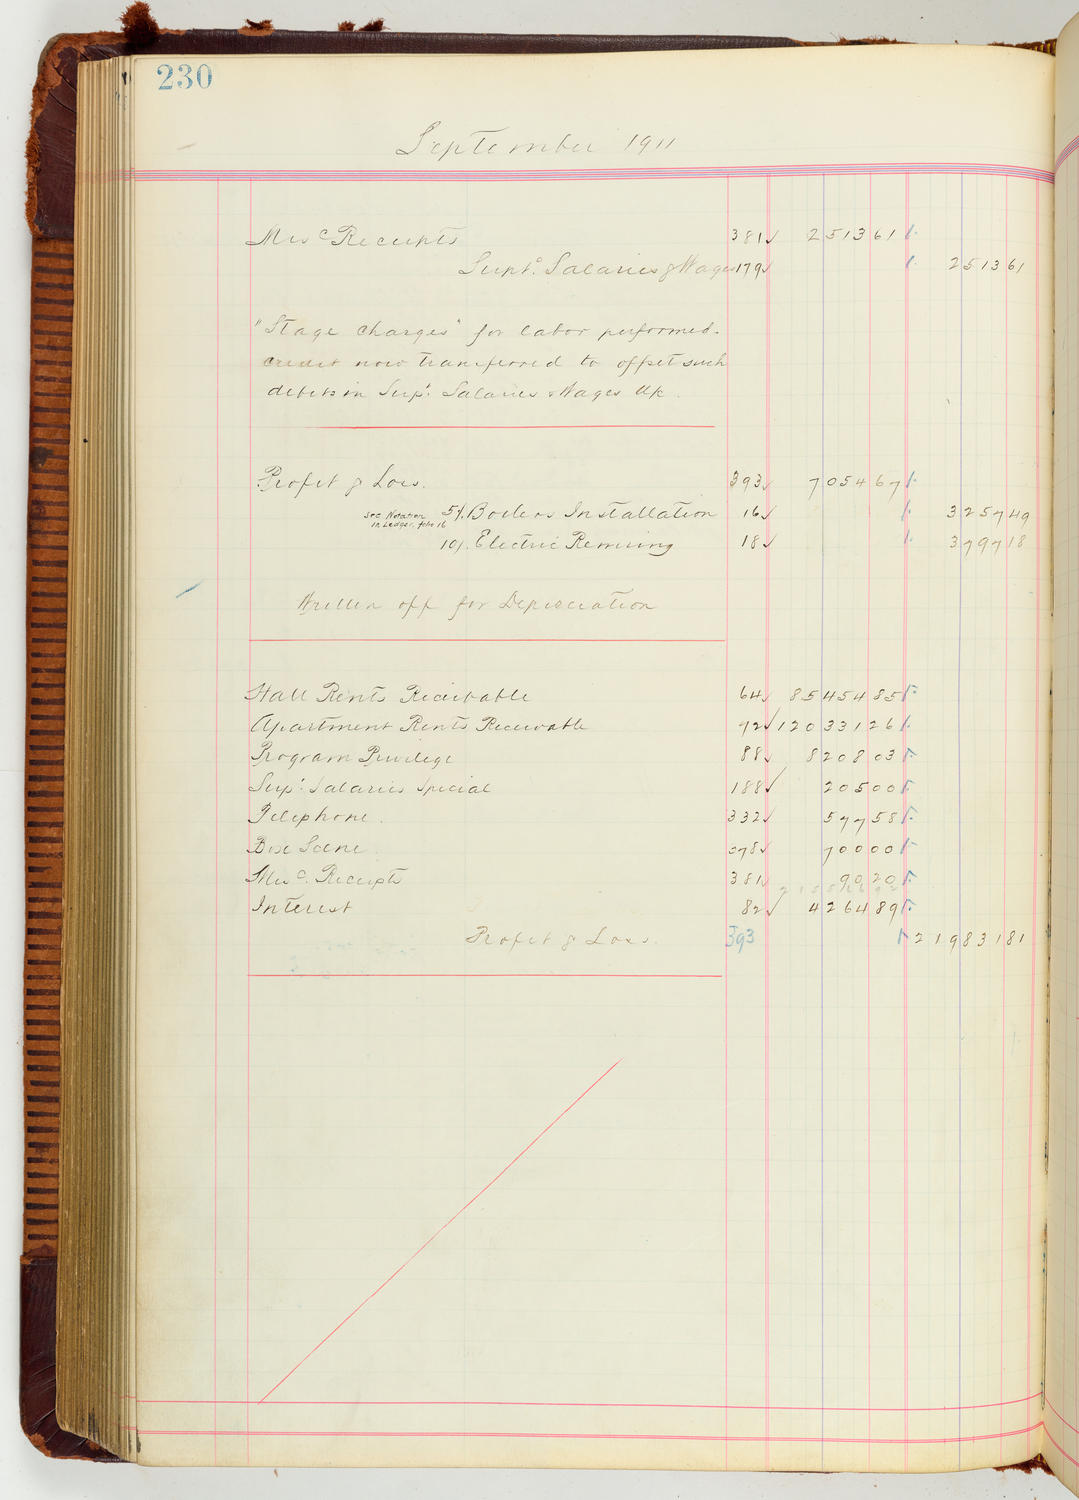 230
September 1911
Misc Receipts 381 ✓ 2513 61
Supt. Salaries & Wages 179 ✓ 2513 61
"Stage Charges" for labor performed.
credit now transferred to offset such
debits in Supt. Salaries & Wages a/c.
Profit & Loss. 393 ✓ 7054 67
See Notation
in Ledger, folio 16
5% Boilers Installation 16 ✓ 3257 49
10% Electric Rewiring 18 ✓ 3797 18
Written off for Depreciation
Hall Rents Receivable 64 ✓ 85454 85
Apartment Rents Receivable 92 ✓ 120331 26
Program Privilege 88 ✓ 8208 03
Supt. Salaries Special 188 ✓ 205 00
Telephone. 332 ✓ 577 58
Box Scene 378 ✓ 700 00
Misc. Receipts 381 ✓ 90 20
215566 92
Interest 82 ✓ 4264 89
Profit & Loss. 393 219831 81